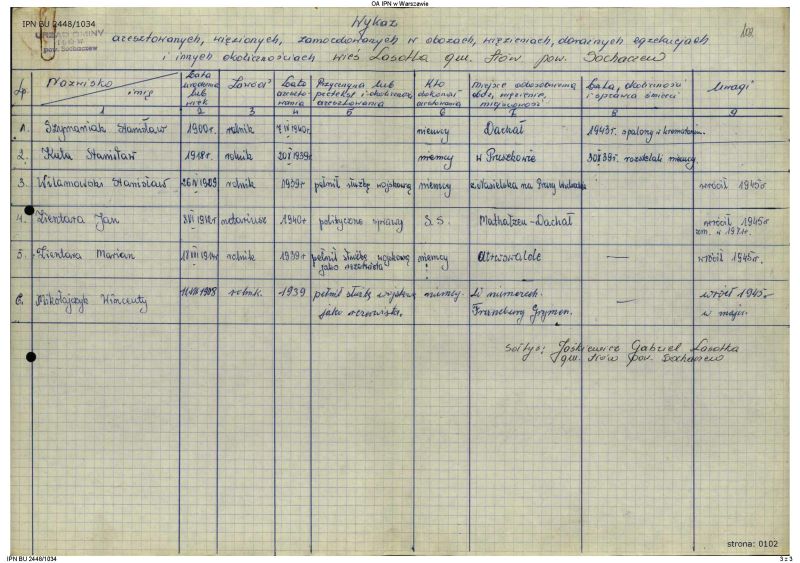 OA IPN w Warszawie
IPN BU 2448/1034
URZĄD GMINY
Iłów
pow. Sochaczew
Wykaz
aresztowanych, więzionych, zamordowanych w obozach, więzieniach, doraźnych egzekucjach
i innych okolicznościach wieś Lasotka gm. Iłów pow. Sochaczew
Lp. Nazwisko i imię Data urodzenia lub wiek Zawód Data aresztowania Przyczyna lub pretekst i okoliczn. aresztowania Kto dokonał aresztowania Miejsce odosobnienia obóz, więzienie, miejscowość Data, okoliczności i sprawca śmierci Uwagi
1 2 3 4 5 6 7 8 9
1. Szymaniak Stanisław 1900r. rolnik 7 IV 1940r. niemcy Dachał 1943r. spalony w krematorium.
2. Kuta Stanisław 1918r. rolnik 20 X 1939r. niemcy w Pruszkowie 30 X 39r. rozstrzelali niemcy.
3. Wilamowski Stanisław 26 IV 1909 rolnik 1939r pełnił służbę wojskową niemcy na Prusy wrócił 1945r
4. Zientara Jan 8 VI 1912r notariusz 1940r polityczne sprawy S.S. Mathałzen-Dachał — wrócił 1945r
zm. w 1971r.
5. Zientara Marian 18 VII 1914r rolnik 1939r pełnił służbę wojskową niemcy — wrócił 1945r.
jako rezerwista
6. Mikołajczyk Wincenty 11 VII 1908 rolnik. 1939 pełnił służbę wojskową niemcy. W niemczech. — wrócił 1945r
jako rezerwista. w maju.
Sołtys: Jaśkiewicz Gabriel Lasotka
gm. Iłów pow. Sochaczew
strona: 0102
IPN BU 2448/1034
3 z 3